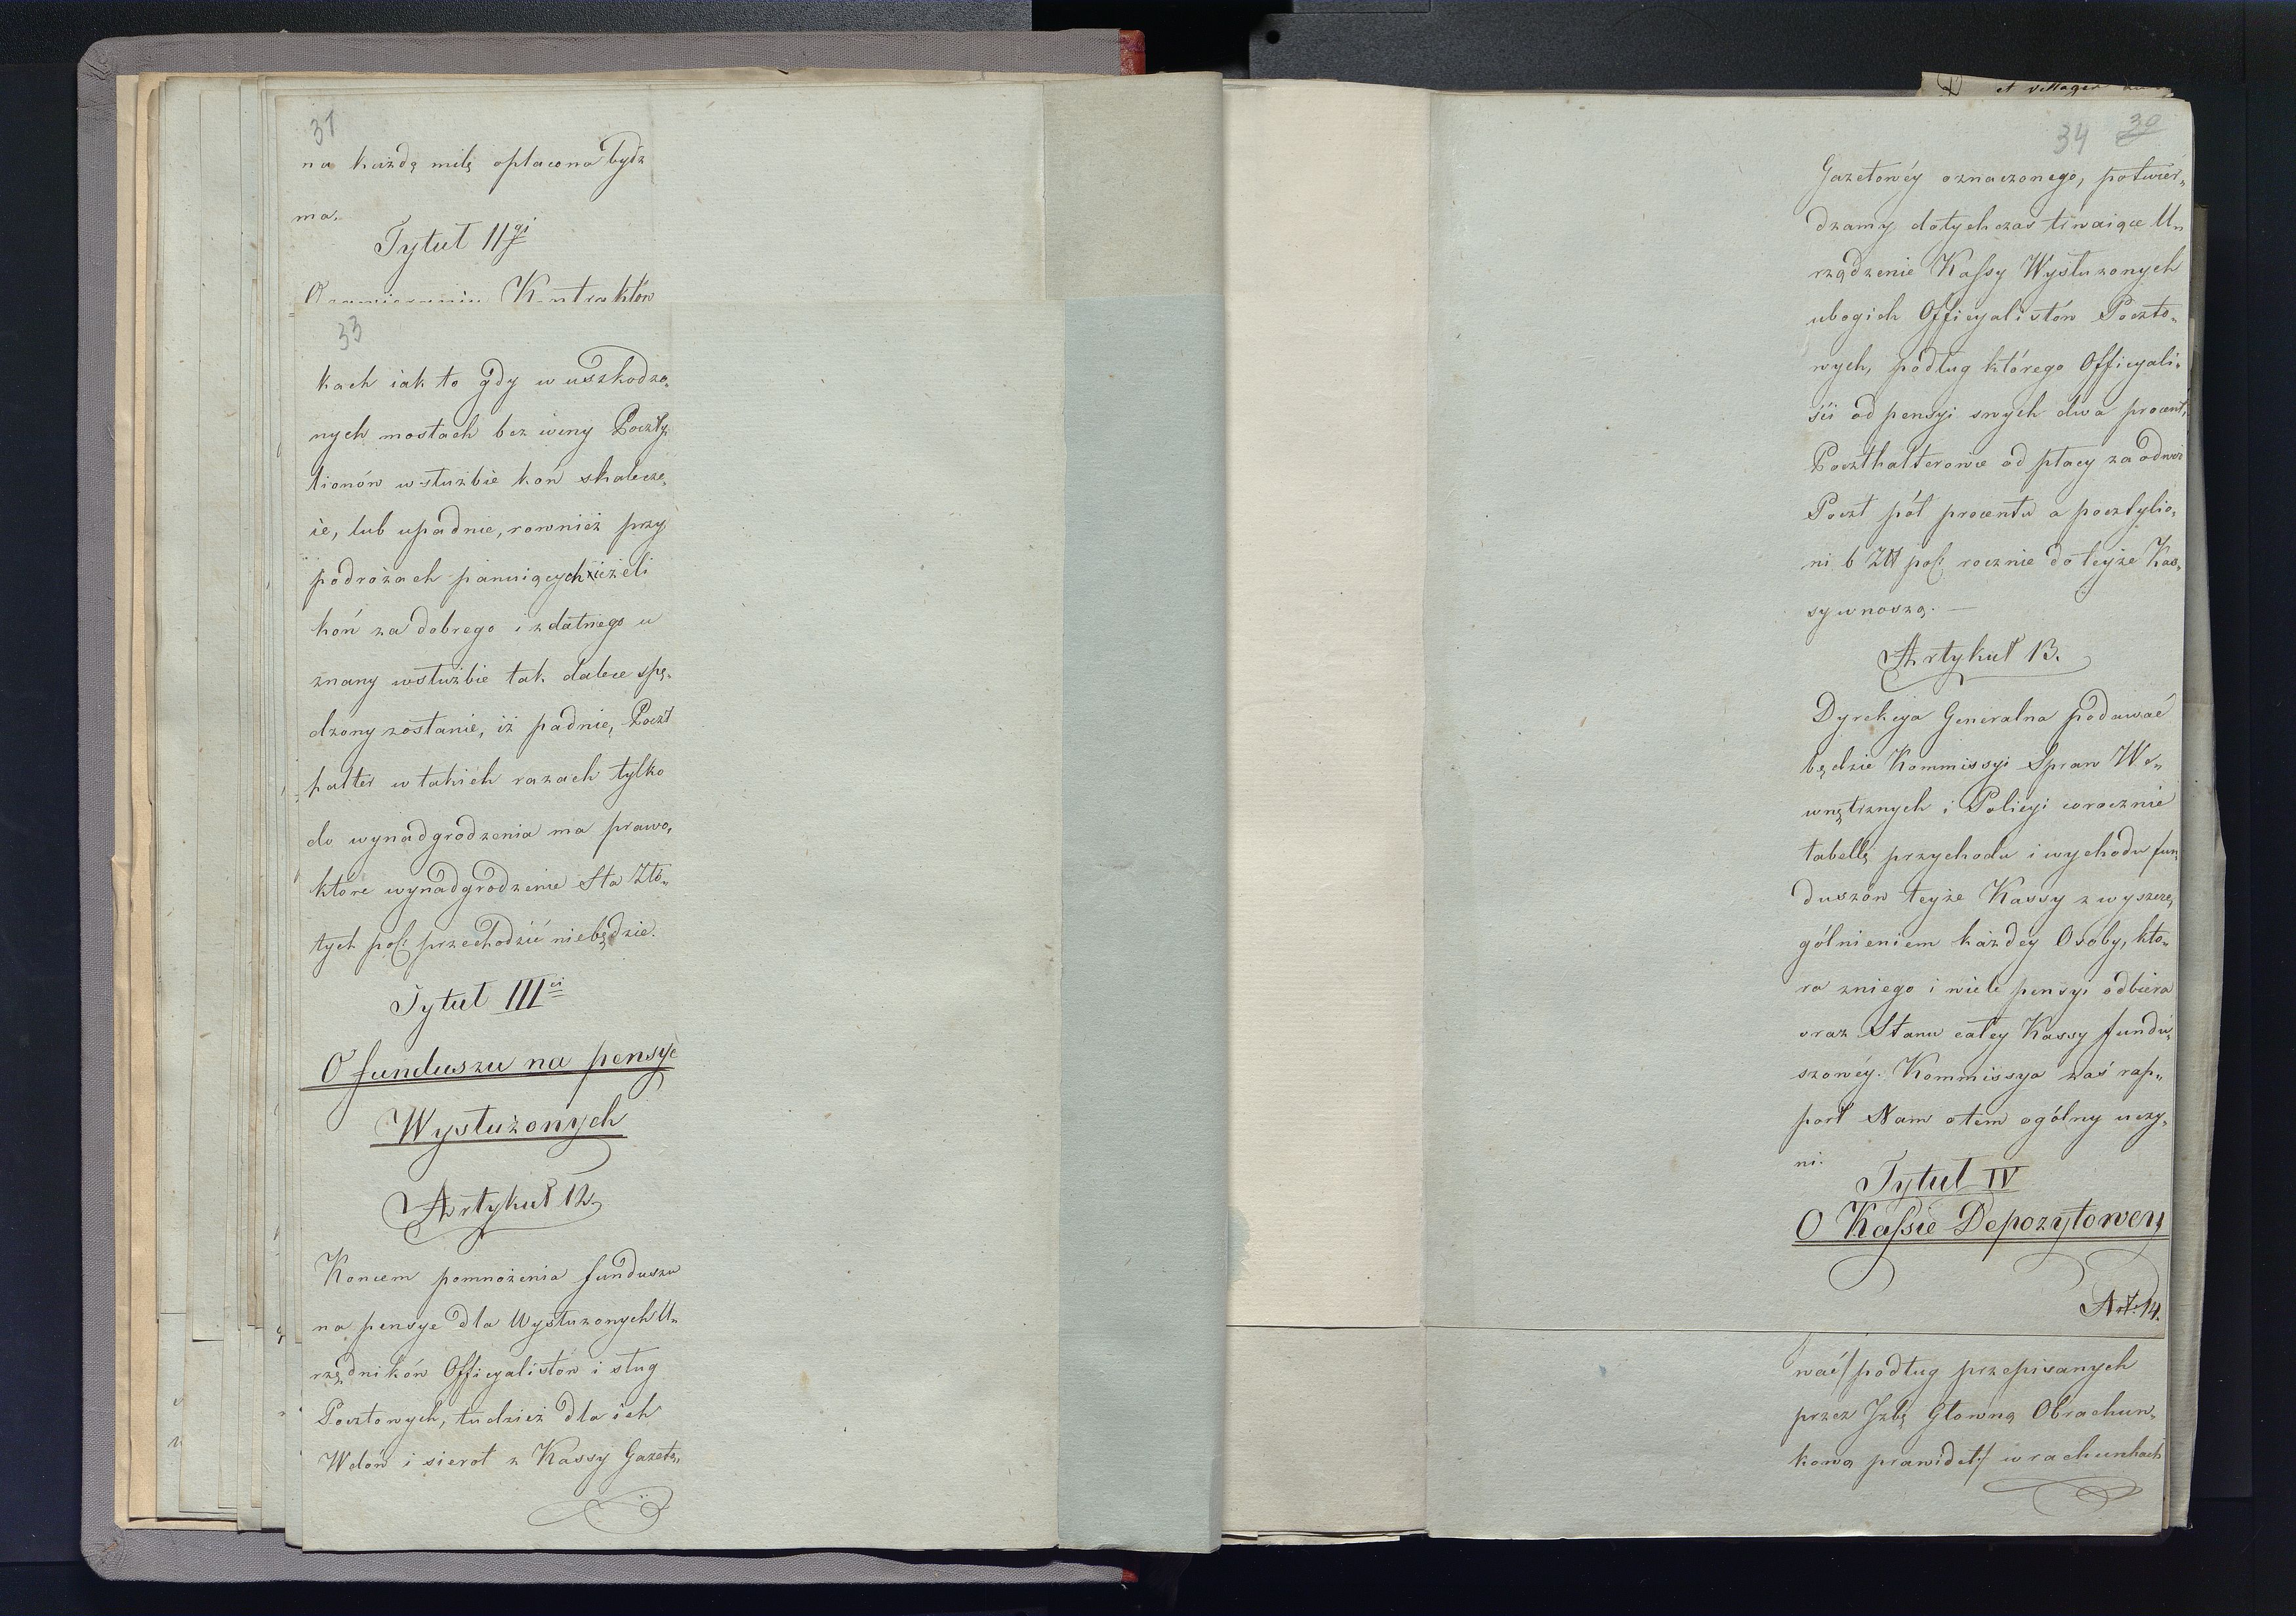 31
na każdą milę opłacona bydź
ma.
Tytuł IIgi
O zawieraniu Kontraktów
33
kach iak to gdy w uszkodzo„
nych mostach bez winy Poczty„
lionów w służbie koń skalecze„
ie, lub upadnie, rownież przy
podróżach panuiących ieżeli
koń za dobrego i zdatnego u
znany w służbie tak dalece spę„
dzony zostanie, iż padnie, Poczt
halter w takich razach tylko
do wynadgrodzenia ma prawo,
które wynadgrodzenie Sta Zło„
tych pol: przechodzić niebędzie.
Tytuł IIIci
O funduszu na pensye
Wysłużonych
Artykuł 12.
Koncem pomnożenia funduszu
na pensye dla Wysłużonych U„
rzędników Officyalistów i sług
Pocztowych, tudzież dla ich
Wdów i sierot z Kassy Gazeto„
et villages
34 30
Gazetowéy oznaczonego, potwier„
dzamy dotychczas trwaiące U„
rządzenie Kassy Wysłużonych
ubogich Officyalistów Poczto„
wych, podług którego Officyali„
ści od pensyi swych dwa procent,
Poczthalterowie od płacy za odwóz
Poczt pół procentu a pocztylio„
ni 6 Zł pol: rocznie do teyże Kas„
sy wnoszą. —
Artykuł 13.
Dyrekcya Generalna podawać
będzie Kommissyi Spraw We„
wnętrznych i Policyi corocznie
tabellę przychodu i wychodu fun„
duszów teyże Kassy z wyszcze„
gólnieniem każdey Osoby, któ„
ra zniego i wiele pensyi odbiera
oraz Stanu całey Kassy fundu„
szowéy. Kommissya zaś rap„
port Nam otem ogólny uczy„
ni.
Tytuł IV
O Kassie Depozytowey
Art. 14.
wać/ podług przepisanych
przez Izbę Głowną Obrachun„
kową prawideł:/ w rachunkach